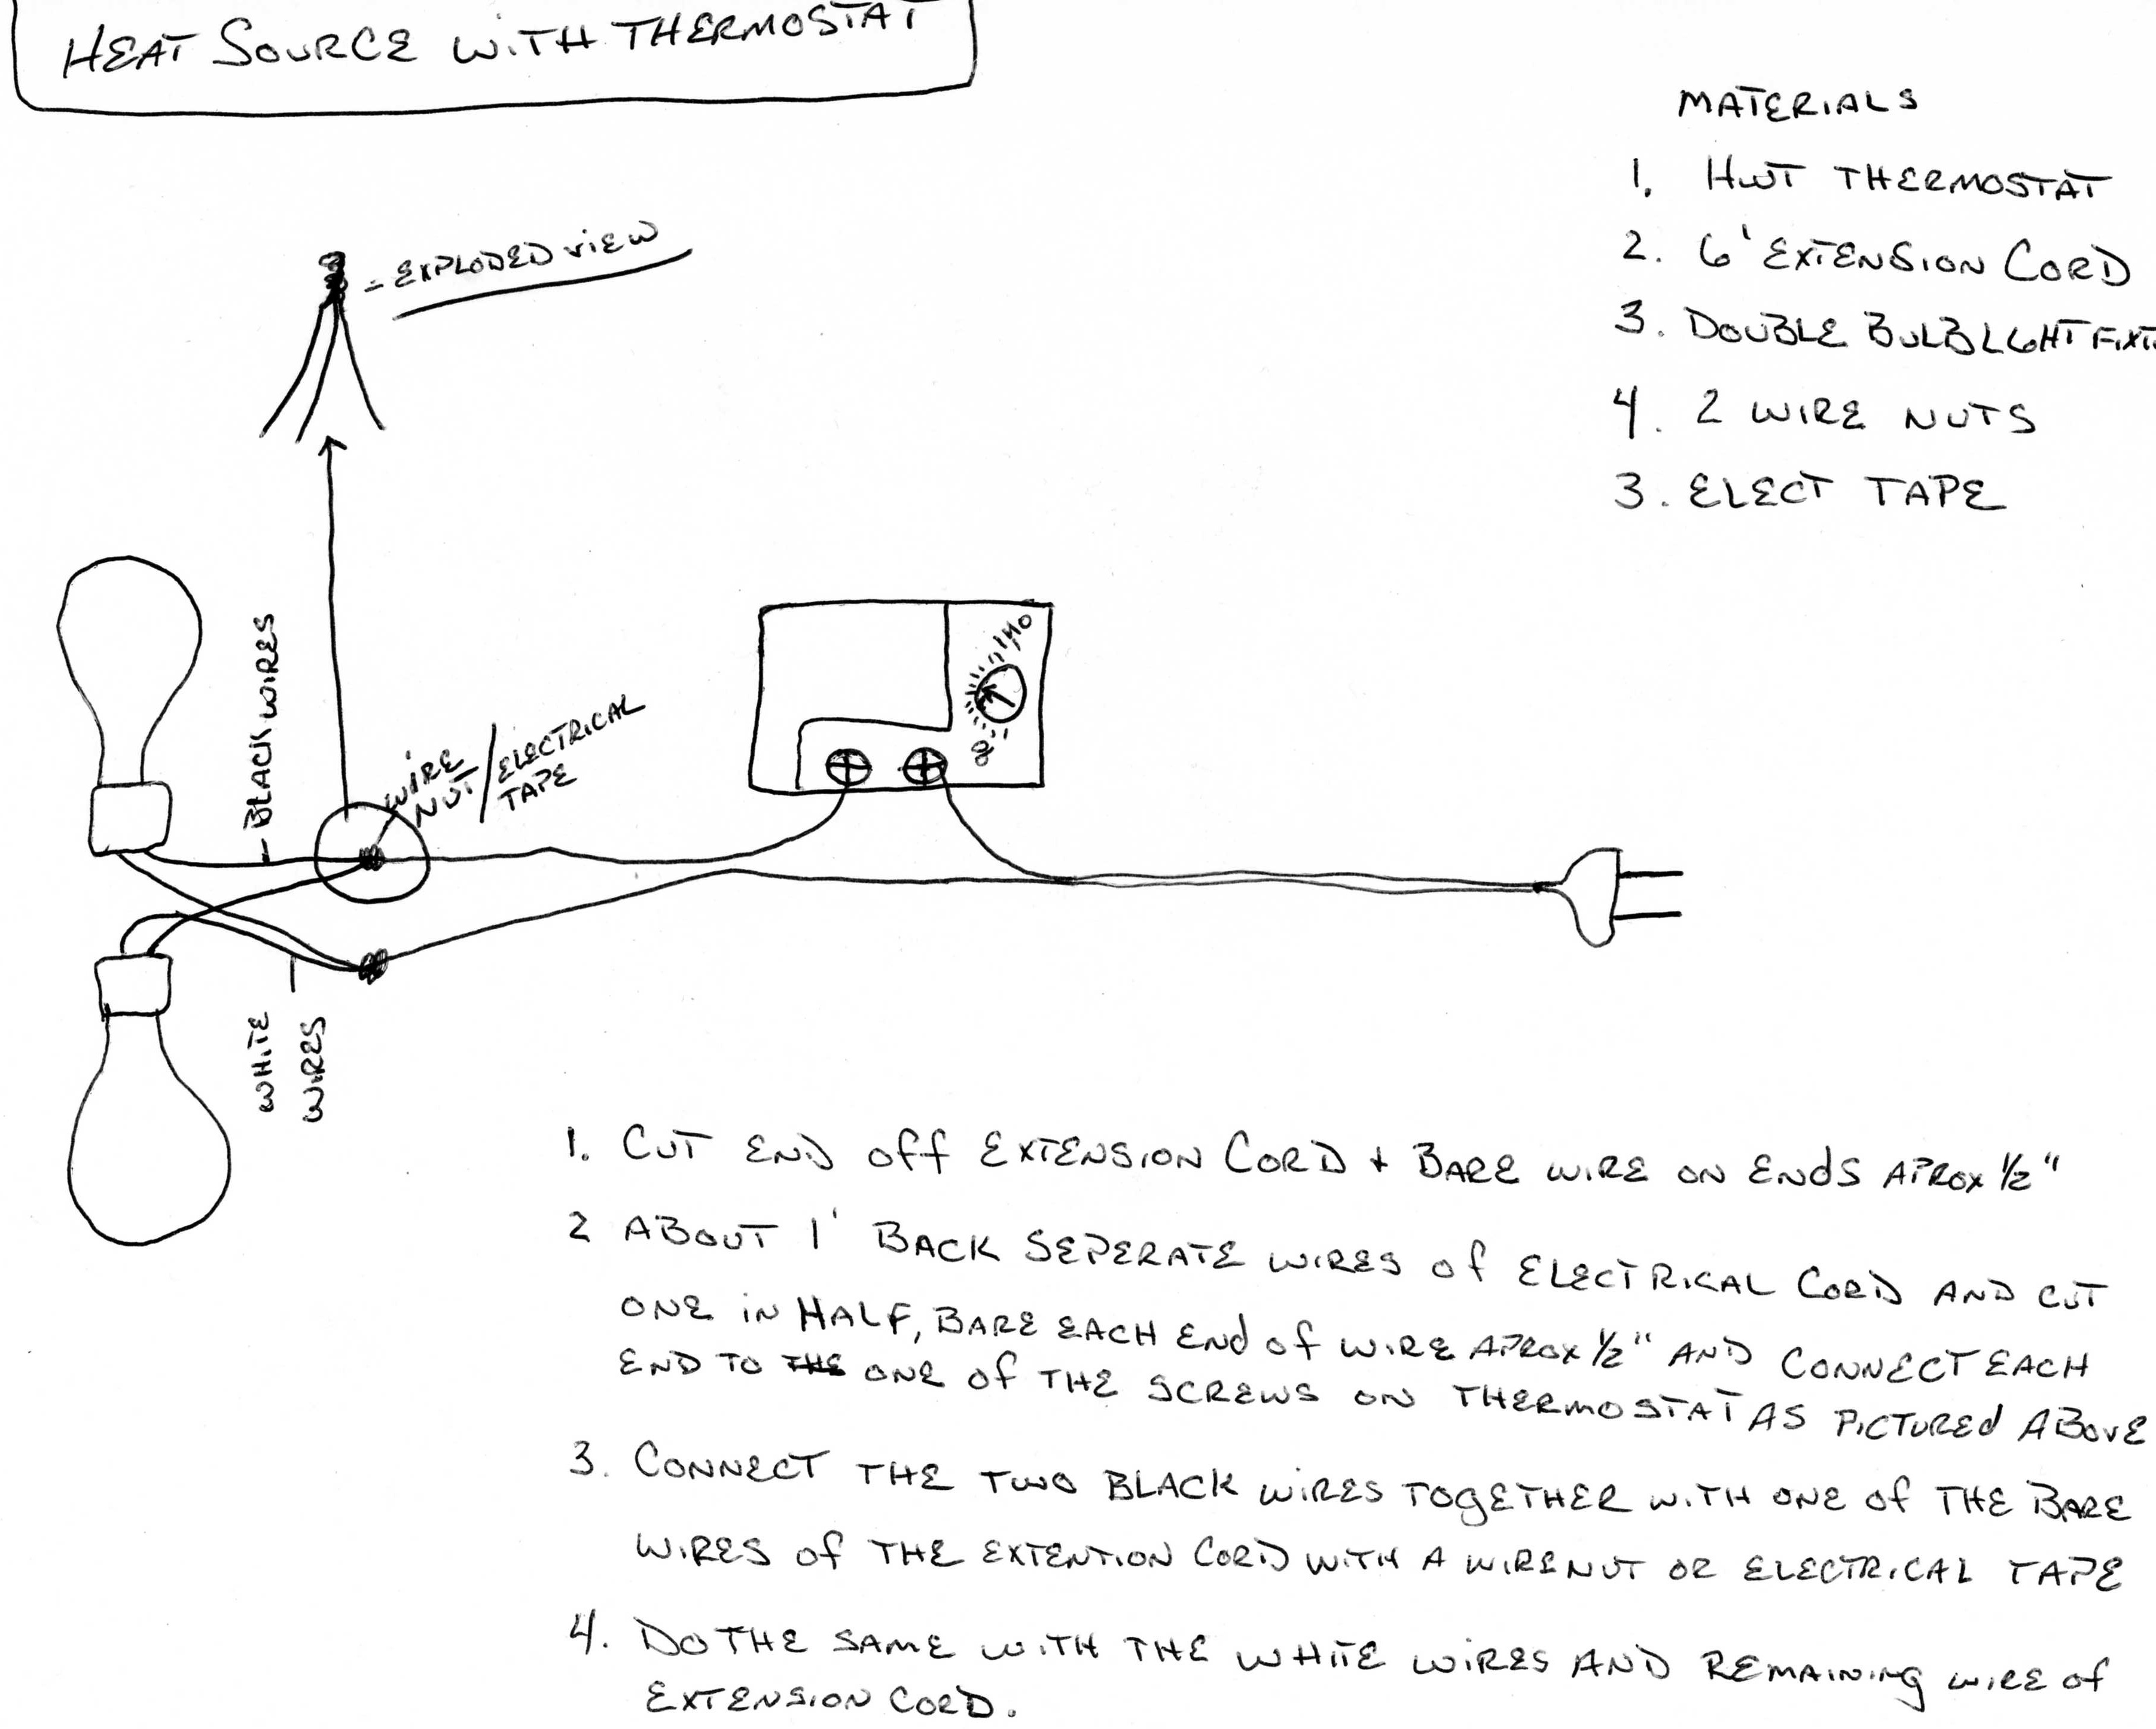 HEAT SOURCE WITH THERMOSTAT
MATERIALS
1. HWT THERMOSTAT
2. 6' EXTENSION CORD
3. DOUBLE BULB LGHT FIXT
4. 2 WIRE NUTS
3. ELECT TAPE
- EXPLODED VIEW
BLACK WIRES
WIRE
NUT/ELECTRICAL
TAPE
140
WHITE
WIRES
1. CUT END Off EXTENSION CORD + BARE WIRE ON ENdS APROX ½"
2 ABOUT 1' BACK SEPERATE WIRES of ELECTRICAL CORD AND CUT
ONE IN HALF, BARE EACH ENd of WIRE APROX ½" AND CONNECT EACH
END TO THE ONE Of THE SCREWS ON THERMOSTAT AS PICTUREd ABOVE
3. CONNECT THE TWO BLACK WIRES TOgETHER WITH ONE of THE BARE
WIRES of THE EXTENTION CORD WITH A WIRENUT OR ELECTRICAL TAPE
4. DO THE SAME WITH THE WHITE WIRES AND REMAINING WIRE of
EXTENSION CORD.